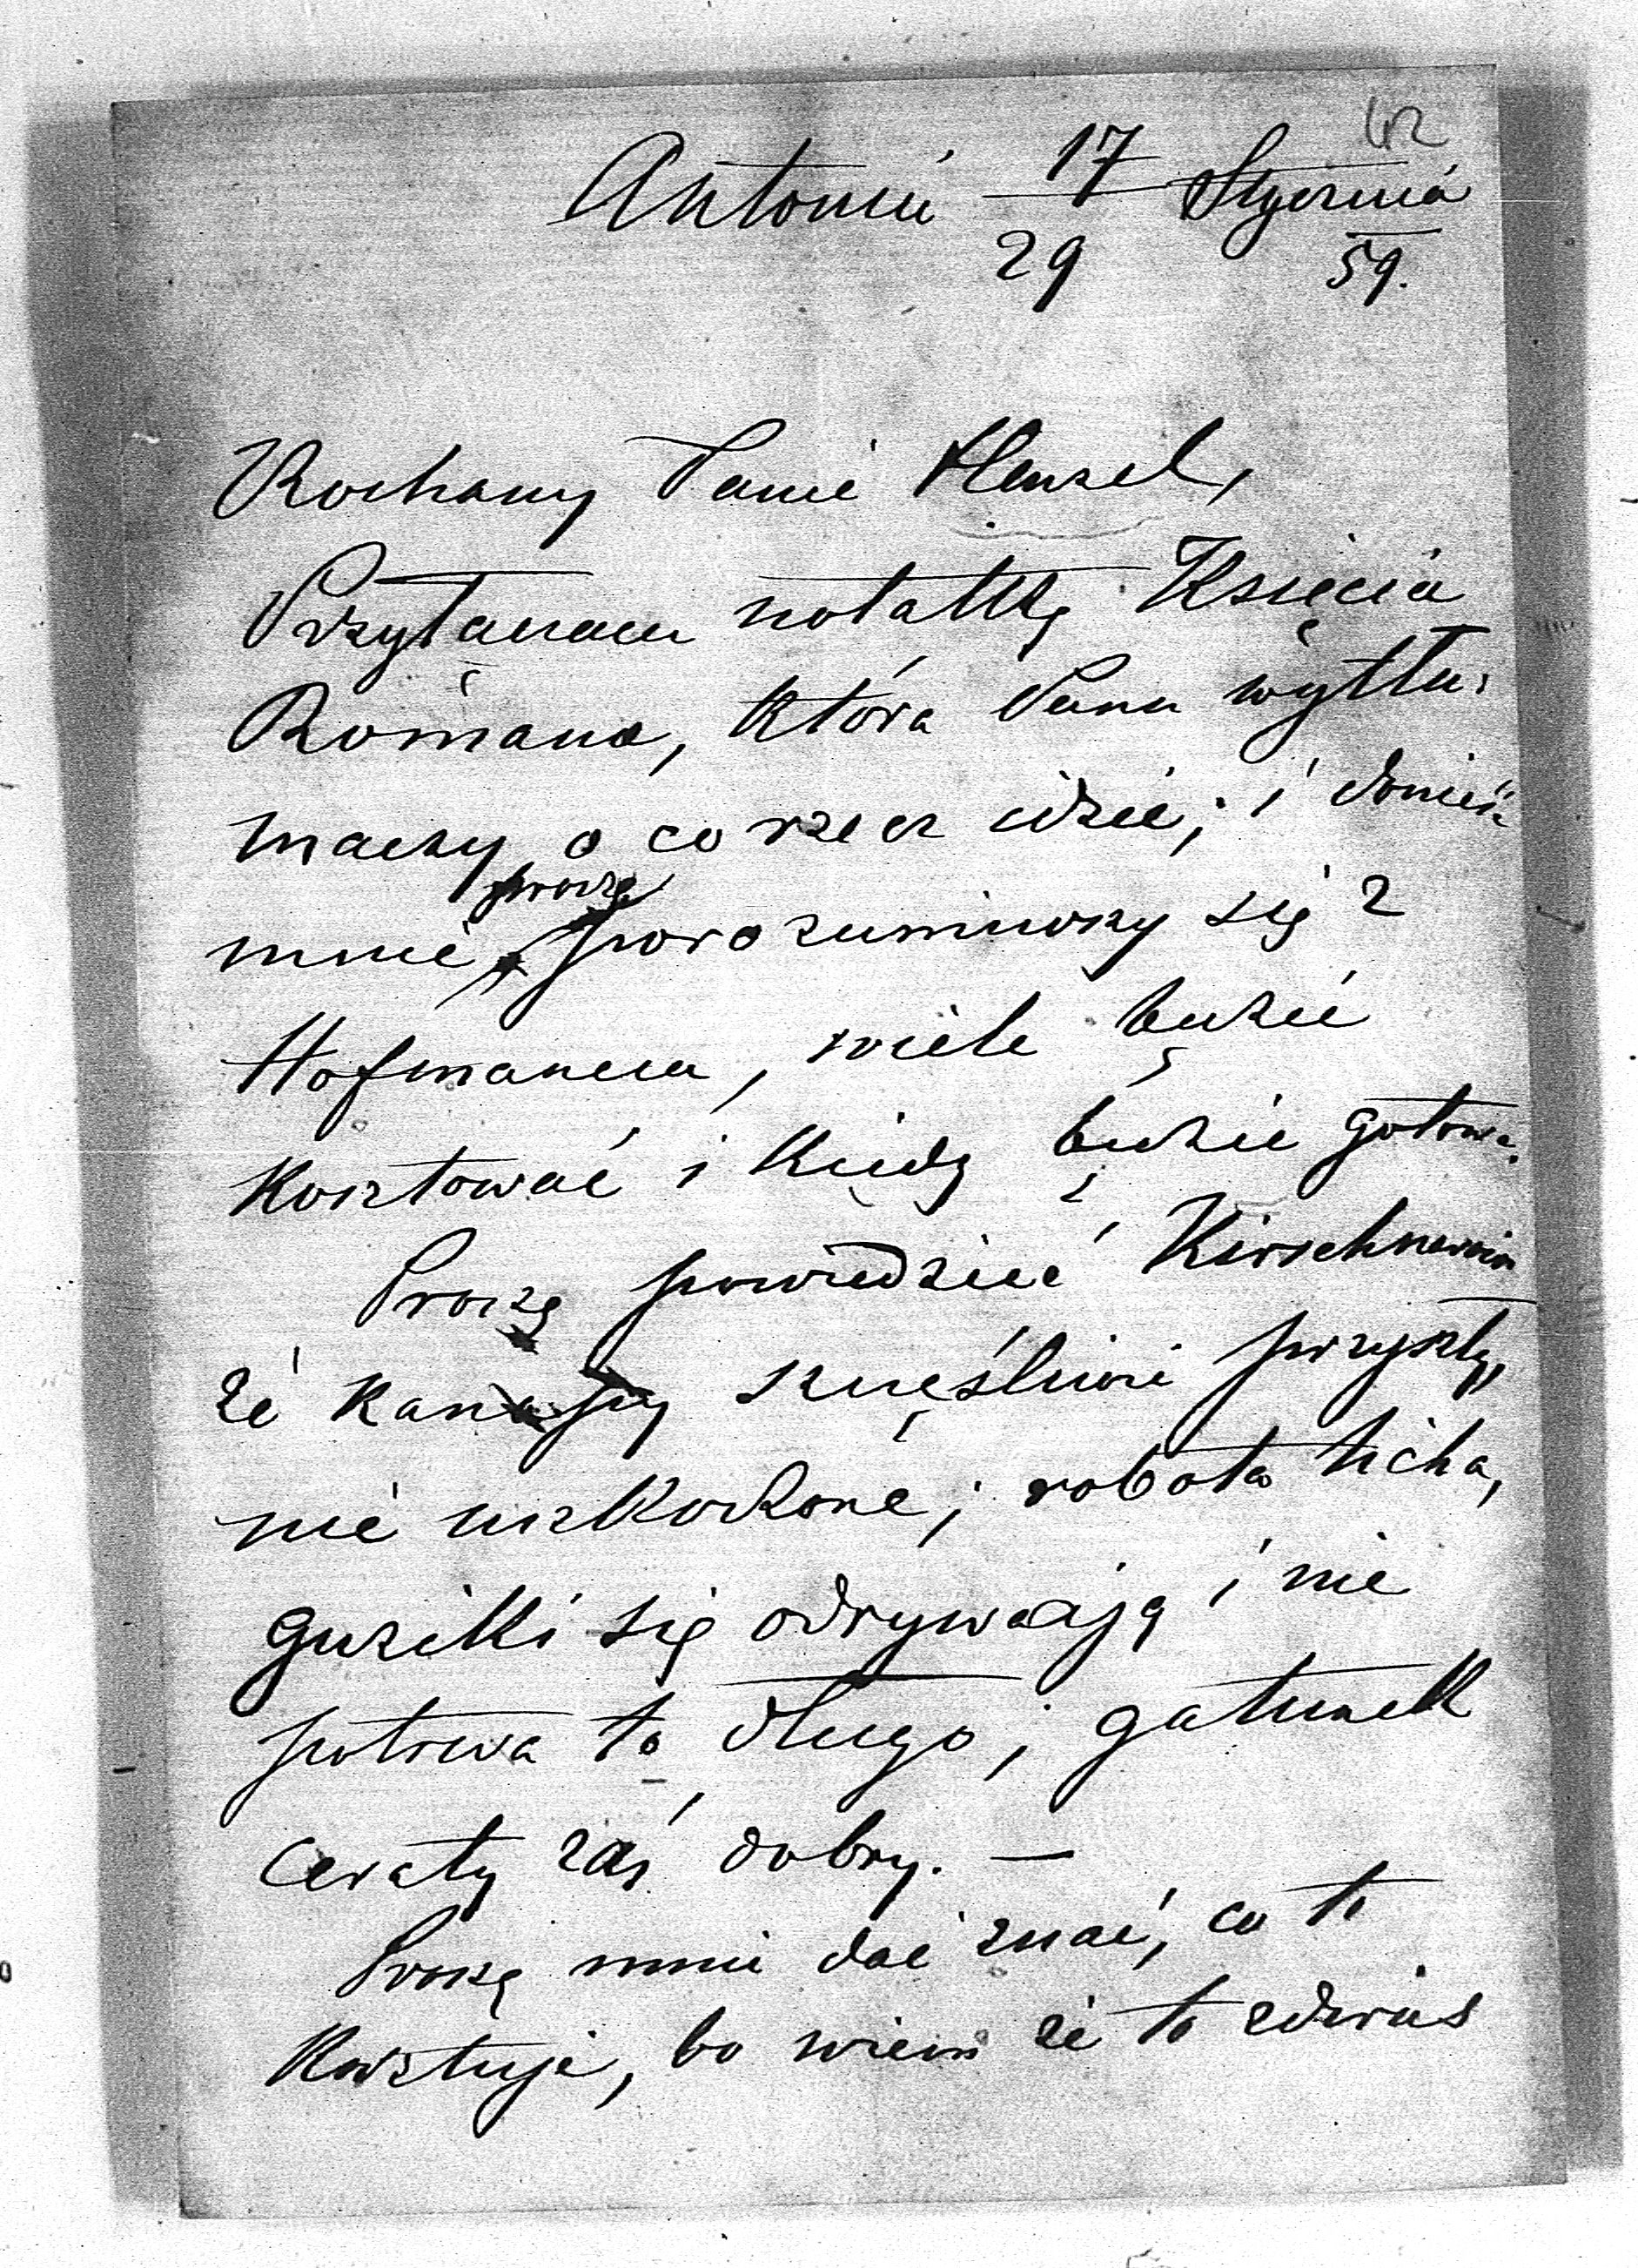 42
Antonin 17/29 Stycznia 59.
Kochany Panie Hensel,
Przyłączam notatkę Księcia
Romana, która Panu wytłu-
maczy o co rzecz idzie; i donieść
mnie proszę porozumiwszy się z
Hofmanem, wiele będzie
kosztować i kiedy będzie gotowe.
Proszę powiedzieć Kirschnerowi
że kanapy szczęśliwie przyszły,
nie uszkodzone; robota licha,
guziki się odrywają i nie
potrwa to długo; gatunek
ceraty zaś dobry. —
Proszę mnie dać znać, co to
kosztuje, bo wiem że to zdwus